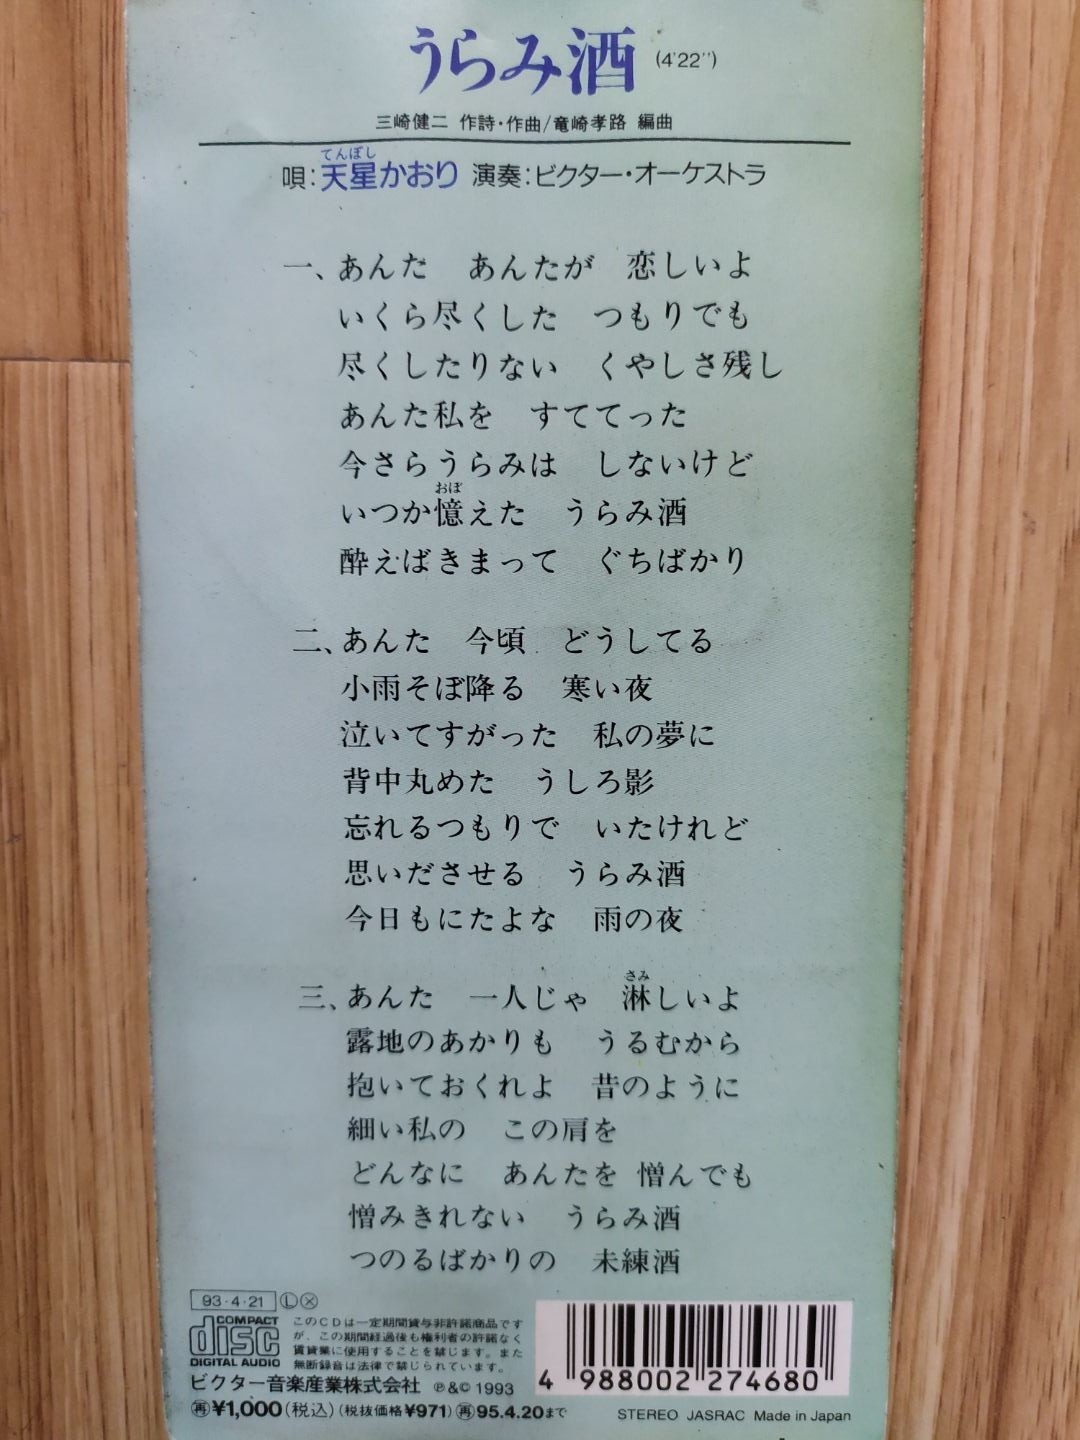 うらみ酒 (4'22'')
三崎健二 作詩・作曲/竜崎孝路 編曲
てんぼし
唄:天星かおり 演奏:ビクター・オーケストラ
一、あんた あんたが 恋しいよ
いくら尽くした つもりでも
尽くしたりない くやしさ残し
あんた私を すててった
今さらうらみは しないけど
おぼ
いつか憶えた うらみ酒
酔えばきまって ぐちばかり
二、あんた 今頃 どうしてる
小雨そぼ降る 寒い夜
泣いてすがった 私の夢に
背中丸めた うしろ影
忘れるつもりで いたけれど
思いださせる うらみ酒
今日もにたよな 雨の夜
さみ
三、あんた 一人じゃ 淋しいよ
露地のあかりも うるむから
抱いておくれよ 昔のように
細い私の この肩を
どんなに あんたを 憎んでも
憎みきれない うらみ酒
つのるばかりの 未練酒
93・4・21 Ⓛ ⓧ
COMPACT
disc
DIGITAL AUDIO
このCDは一定期間貸与非許諾商品です
が、この期間経過後も権利者の許諾なく
賃貸業に使用することを禁じます。また
無断録音は法律で禁じられています。
ビクター音楽産業株式会社 ℗&© 1993
㊢¥1,000(税込)(税抜価格¥971)㊢95.4.20まで
4 988002 274680
STEREO JASRAC Made in Japan